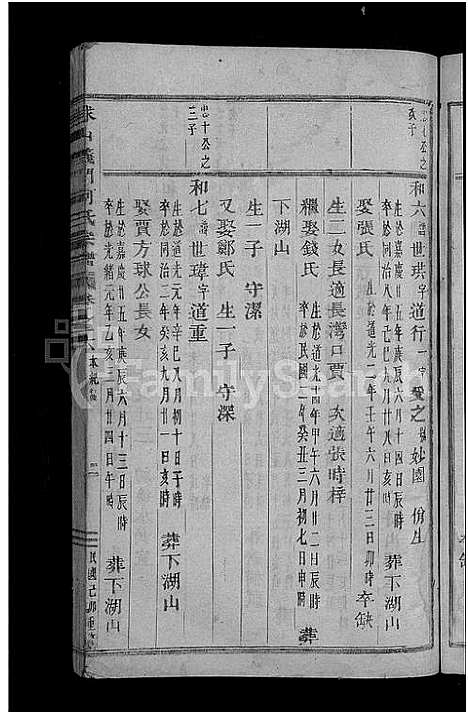 忠七公之
亥子
和六 譜世珙字道行一字愛之號妙園 一份生
生於嘉慶廿五年庚辰六月十四日辰時
卒於同治八年己巳九月廿八日亥時 葬下湖山
娶張氏 生於道光二年壬午六月廿三日卯時 卒缺
生二女長適長灣口賈 次適張時梓
繼娶錢氏 生於道光十四年甲午六月廿二日辰時
卒於民國二年癸丑三月初七日申時 葬
下湖山
生一子 守潔
又娶鄭氏 生一子 守深
忠十公之
三子
和七 譜世璋字道重
生於道光元年辛巳八月初十日子時
卒於同治二年癸亥九月廿一日亥時 葬下湖山
娶賈方球公長女
生於嘉慶廿五年庚辰六月十三日辰時
卒於光緒元年乙亥三月廿四日午時 葬下湖山
義門何氏宗譜
民國己卯重修
FamilySearch